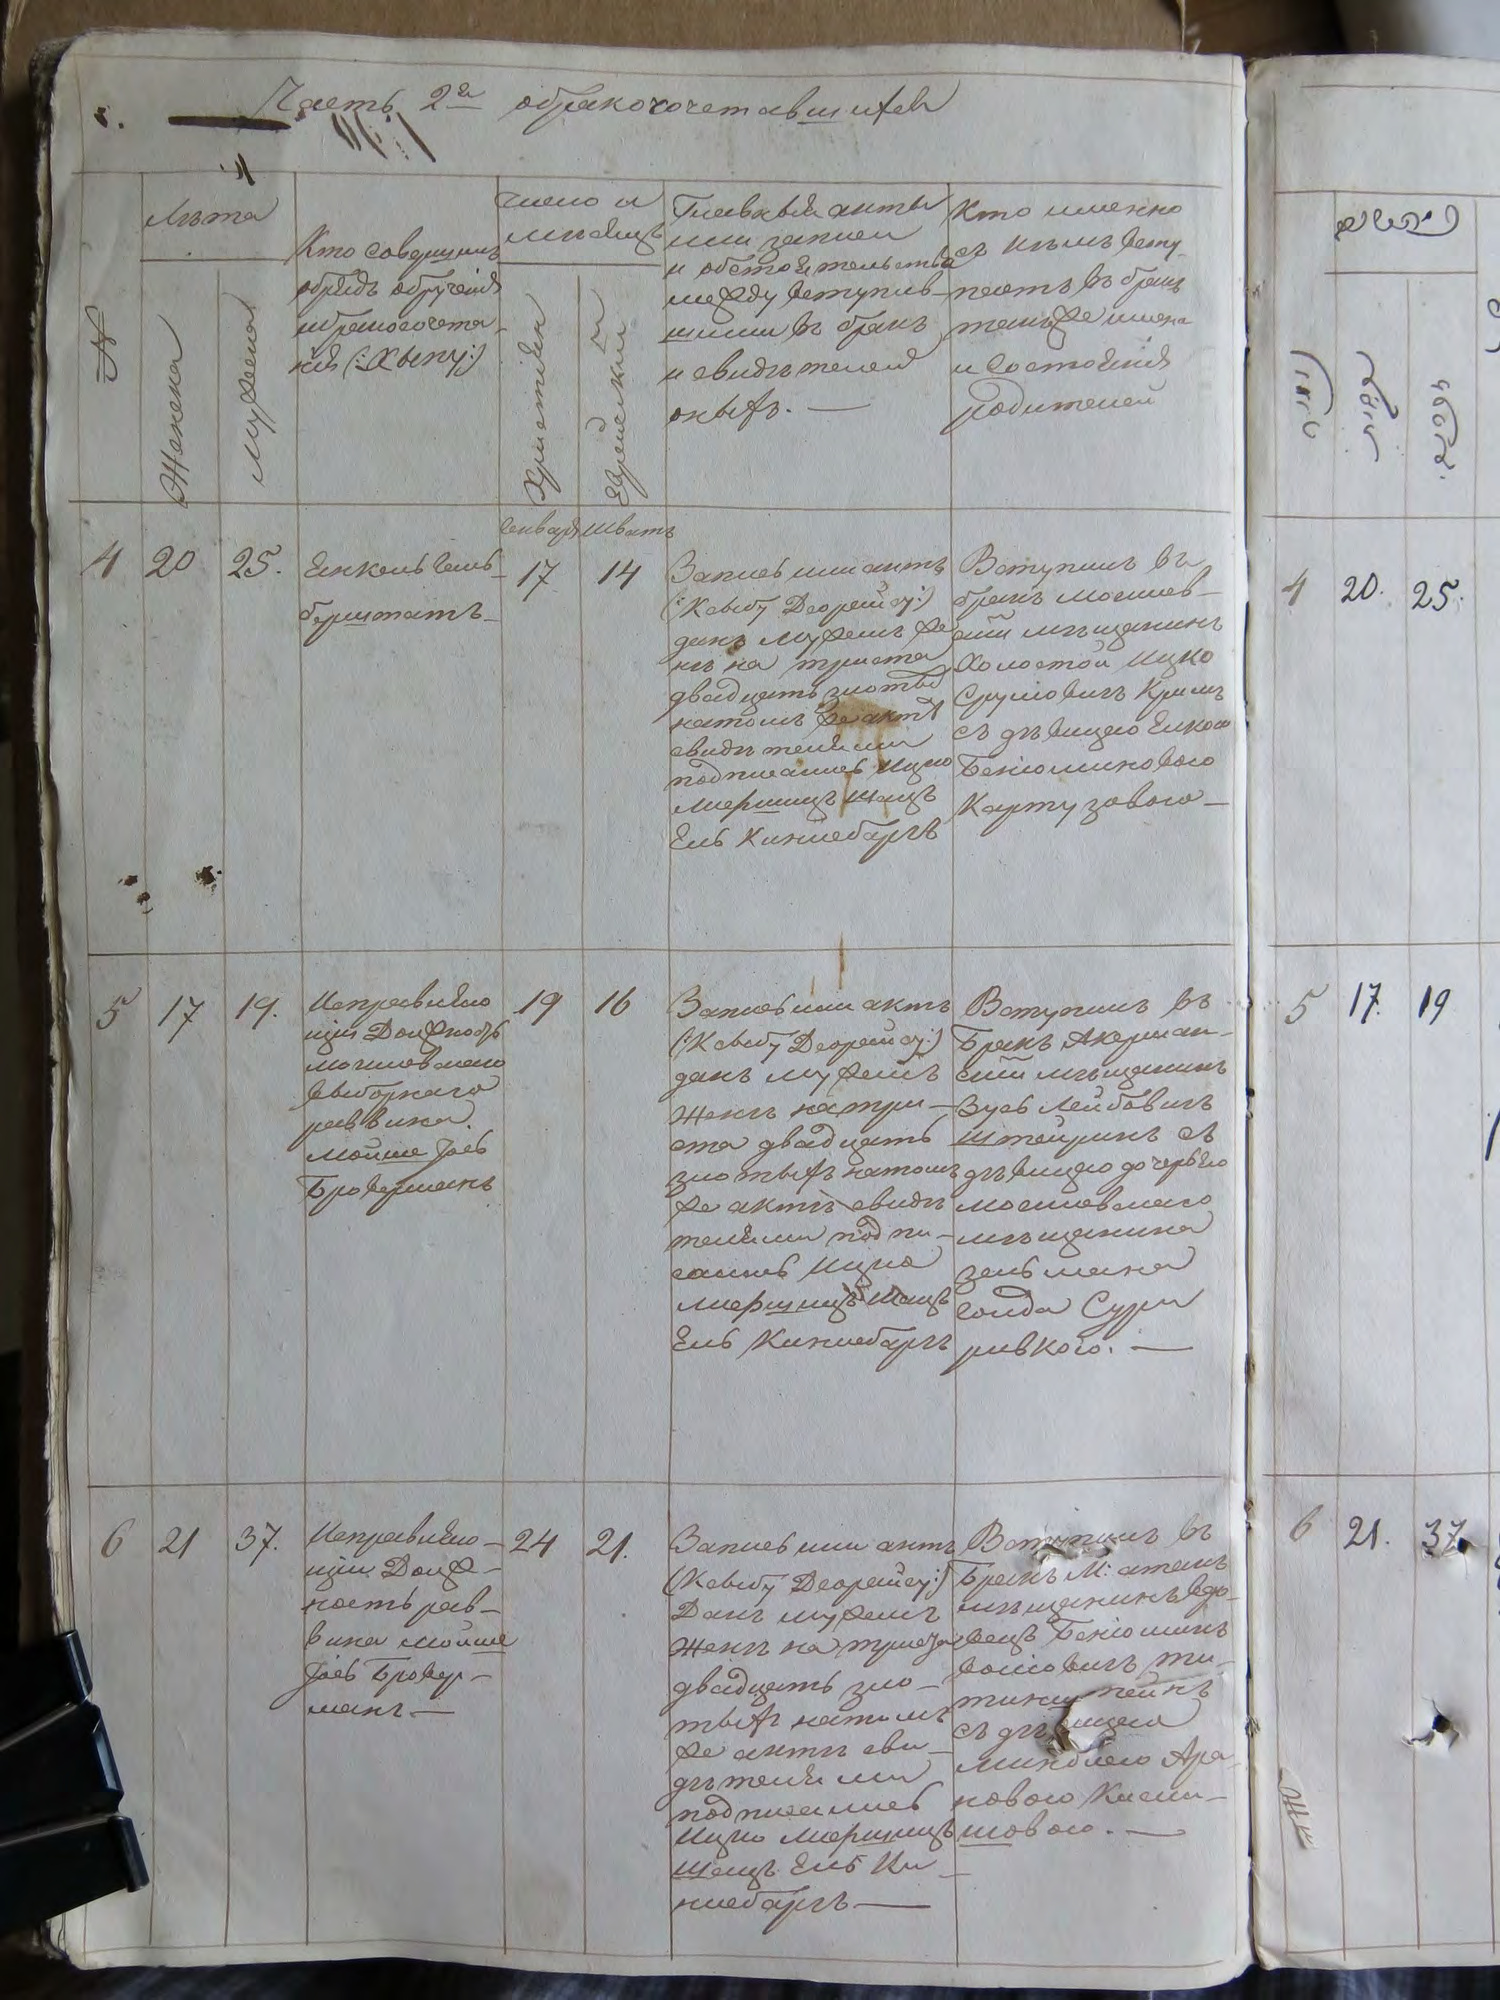 Часть 2я обракосочетавшихся
№
Лѣта
Женска
Мужеска
Кто совершилъ
обрядъ обрученія
ибракосочета-
нія (:Хыпу:)
Число и
мѣсяцъ
Христіянскій
Еврейскій
Главный акты
или записи
и обстоятельства
между вступив-
шими въ бракъ
и свидѣтелей
оныхъ. —
Кто именно
съ кѣмъ всту-
паетъ въ бракъ
также имена
и состоянія
родителей
Январъ Шватъ
4
20
25.
Янкель
берштатъ
17
14
Запись или актъ
(:Ксыбу Деорейсу:)
данъ мужемъ же
нѣ на триста
двадцать злотыхъ
натомъ же актѣ
свидѣтелями
подписались Ицко
Мершицъ Шацъ
Ель Кинисбаргъ
Вступилъ въ
бракъ могилев-
скій мѣщанинъ
Холостой Ицко
Срулiовичъ Кримъ
съ дѣвицею Елкою
Бенiоминовою
Картузовою —
5
17
19.
Исправляю
щій Должность
могилевскаго
выборнаго
раввина
Мойше Іось
Броверманъ
19
16
Запись или актъ
(:Ксыбу Деорейсу:)
данъ мужемъ
Женѣ на три-
ста двадцать
злотыхъ натомъ
же актѣ свидѣ
телями подпи-
сались Ицко
Мершицъ Шацъ
Ель Кинисбаргъ
Вступилъ въ
Бракъ Акерман-
скій мѣщанинъ
Зусь Лейбовичъ
Штейринъ съ
дѣвицею дочерью
могилевскаго
мѣщанина
Зельмана
Голда Сура
ривкою. —
6
21
37.
Исправляю-
щій Долж-
ность рав-
вина Мойше
Іось Бровер-
манъ —
24
21.
Запись или актъ
(:Ксыбу Деорейсу:)
Данъ мужемъ
Женѣ на триста
двадцать зло-
тыхъ натомъ
же актѣ сви-
дѣтелями
подписались
Ицко Мершицъ
Шацъ Ель Ки-
нисбаргъ —
Вступилъ въ
Бракъ М:
мѣщанинъ вдо-
вецъ Бенiоминъ
съ дѣвицею
Миндлею Аро-
новою
шовою. —
4 20. 25.
5 17. 19
6 21. 37.